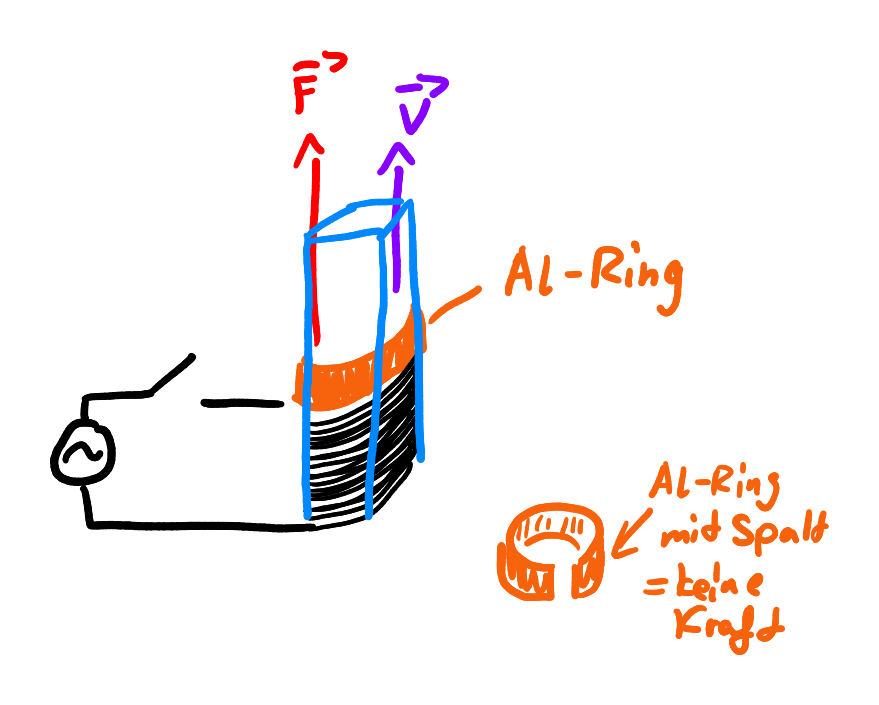 F
V
Al-Ring
Al-Ring
mit Spalt
= keine
Kraft